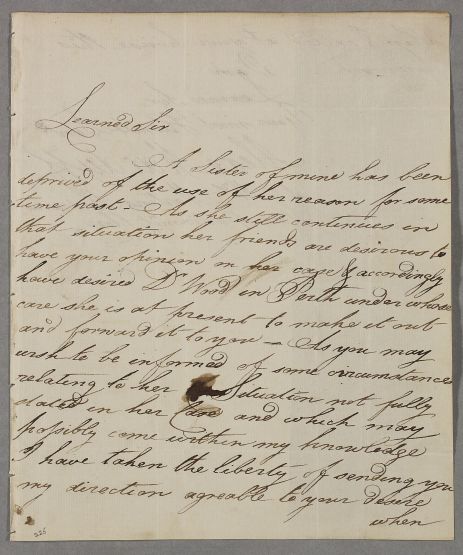 Learned Sir
A Sister of mine has been
deprived of the use of her reason for some
time past - As she still continues in
that situation her friends are desirous to
have your opinion in her case & accordingly
have desired Dr Wood in Perth under whose
care she is at present to make it out
and forward it to you - As you may
wish to be informed of some circumstances
relating to her Situation not fully
stated in her Case and which may
possibly come within my knowledge
I have taken the liberty of sending you
my direction agreable to your desire
when
226